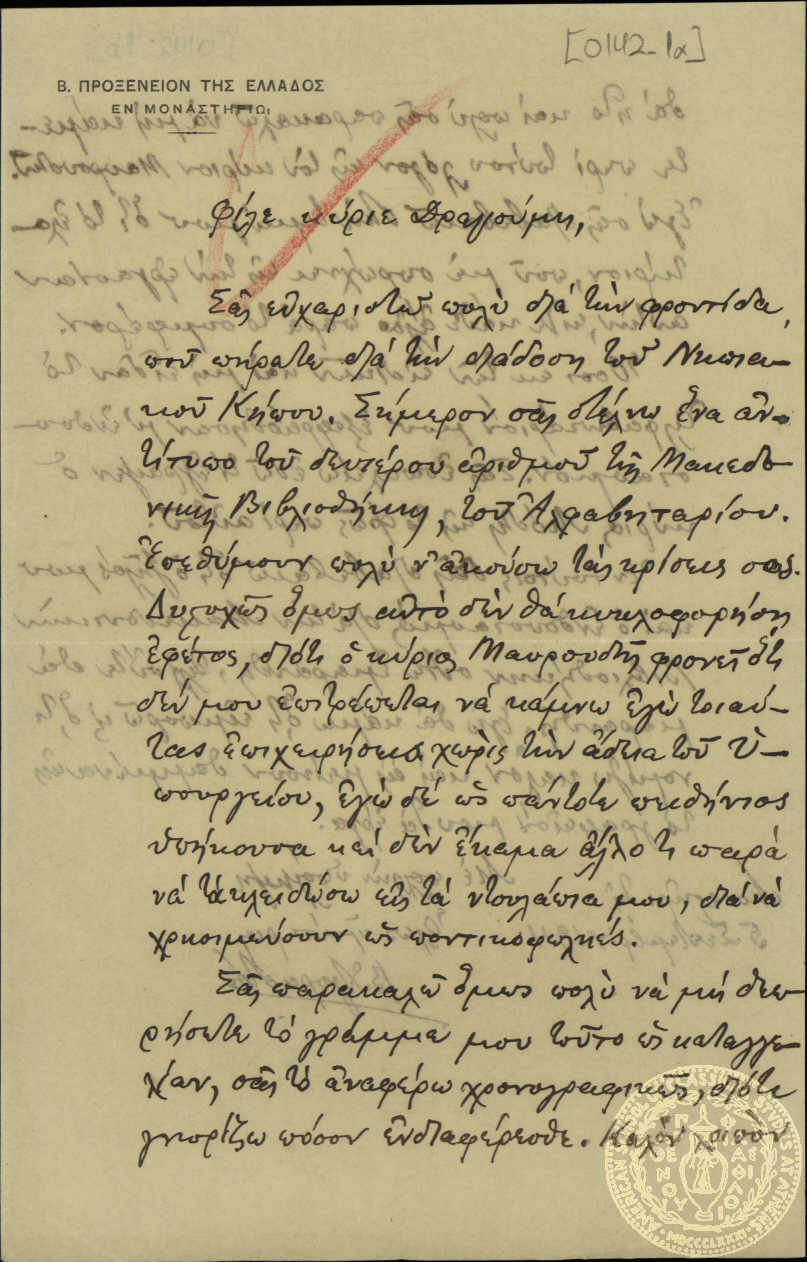 [0142-1α]
Β. ΠΡΟΞΕΝΕΙΟΝ ΤΗΣ ΕΛΛΑΔΟΣ
ΕΝ ΜΟΝΑΣΤΗΡΙΩι
Φίλε κύριε Δραγούμη,
Σᾶς εὐχαριστῶ πολὺ διὰ τὴν φροντίδα,
ποῦ ἐπήρατε διὰ τὴν διάδοση τοῦ Νηπια-
κοῦ Κήπου. Σήμερον σᾶς στέλνω ἕνα ἀν-
τίτυπο τοῦ δευτέρου ἀριθμοῦ τῆς Μακεδο-
νικῆς Βιβλιοθήκης, τοῦ Ἀλφαβηταρίου.
Ἐπεθύμουν πολὺ ν' ἀκούσω τὰς κρίσεις σας.
Δυστυχῶς ὅμως αὐτὸ δὲν θὰ κυκλοφορήση
ἐφέτος, διότι ὁ κύριος Μαυρουδῆς φρονεῖ ὅτι
δὲν μου ἐπιτρέπεται νὰ κάμνω ἐγὼ τοιαύ-
τας ἐπιχειρήσεις χωρὶς τὴν ἄδεια τοῦ Ὑ-
πουργείου, ἐγὼ δὲ ὡς πάντοτε πειθήνιος
ὑπήκουσα καὶ δὲν ἔκαμα ἄλλο τι παρὰ
νὰ τὰ κλειδώσω εἰς τὰ ντουλάπια μου, διὰ νὰ
χρησιμεύσουν ὡς ποντικοφωλιές.
Σᾶς παρακαλῶ ὅμως πολὺ νὰ μὴ θεω-
ρήσετε τὸ γράμμα μου τοῦτο ὡς καταγγε-
λίαν, σᾶς τὸ ἀναφέρω χρονογραφικῶς, διότι
γνωρίζω πόσον ἐνδιαφέρεσθε. Καλὸν λοιπὸν